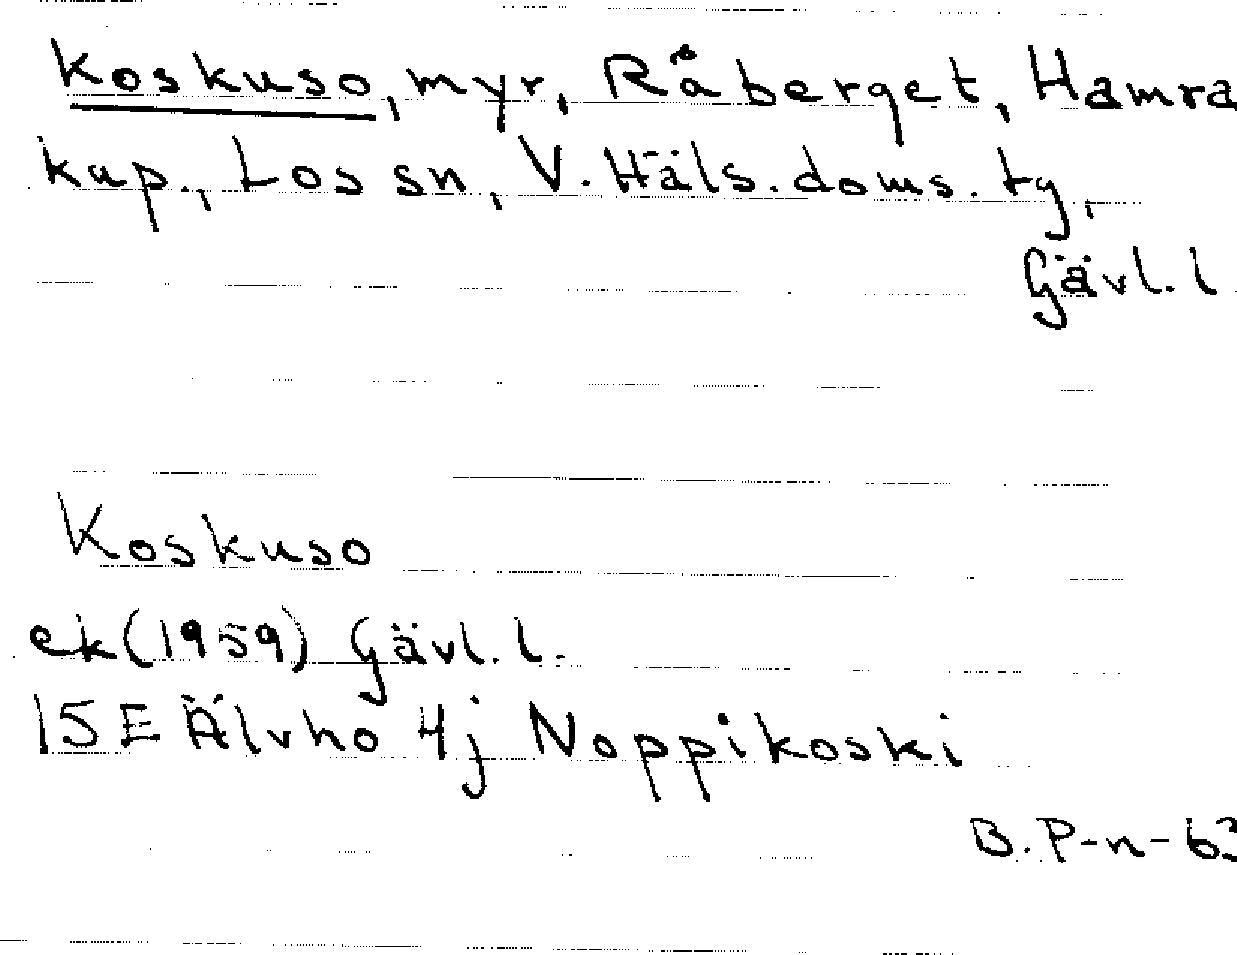 Koskuso, myr, Råberget, Hamra
kap., Los sn, V. Häls. doms. tg,
Gävl. l.
Koskuso
ek (1959) Gävl. l.
15E Älvho 4j Noppikoski
B. P-n-63